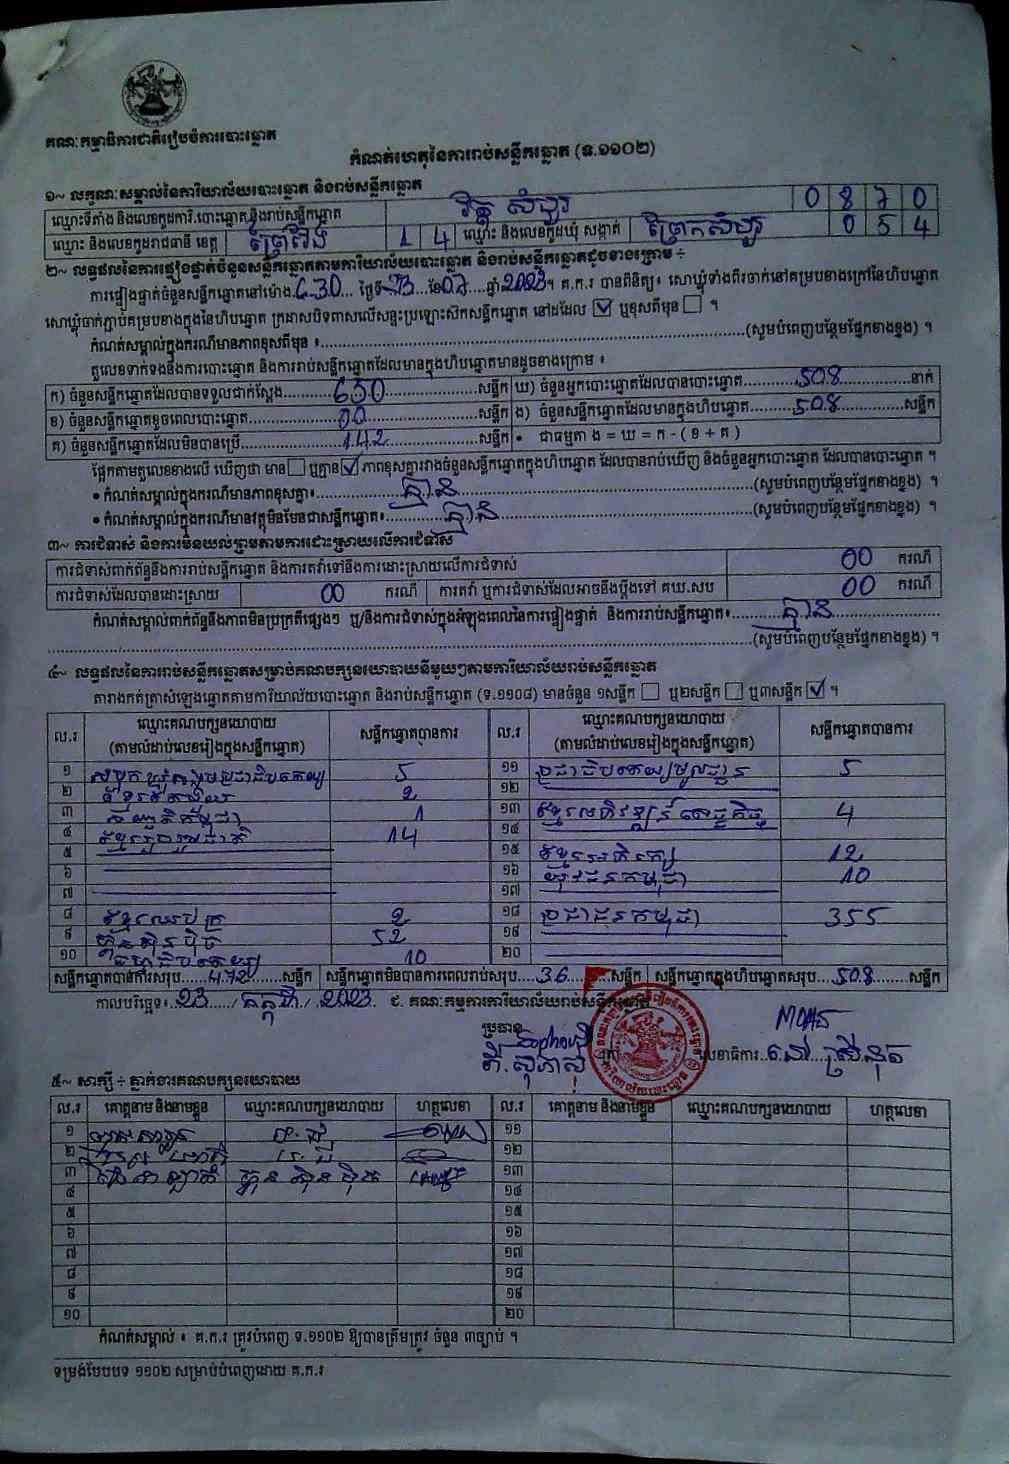 គណៈកម្មាធិការជាតិរៀបចំការបោះឆ្នោត
កំណត់ហេតុនៃការរាប់សន្លឹកឆ្នោត (ទ.១១០២)
១~ លក្ខណៈសម្គាល់នៃការិយាល័យបោះឆ្នោត និងរាប់សន្លឹកឆ្នោត
ឈ្មោះទីតាំង និងលេខកូដការិ.បោះឆ្នោត និងរាប់សន្លឹកឆ្នោត វត្ត សំបួរ 0 8 7 0
ឈ្មោះ និងលេខកូដរាជធានី ខេត្ត ព្រៃវែង 1 4 ឈ្មោះ និងលេខកូដឃុំ សង្កាត់ ព្រែកសំបួរ 0 5 4
២~ លទ្ធផលនៃការផ្ទៀងផ្ទាត់ចំនួនសន្លឹកឆ្នោតតាមការិយាល័យបោះឆ្នោត និងរាប់សន្លឹកឆ្នោតដូចខាងក្រោម ÷
ការផ្ទៀងផ្ទាត់ចំនួនសន្លឹកឆ្នោតនៅម៉ោង ថ្ងៃទី 23 ខែ 07 ឆ្នាំ 2023 ។ គ.ក.រ បានពិនិត្យ៖ សោឃ្លុំទាំងពីរចាក់នៅគម្របខាងក្រៅនៃហិបឆ្នោត
សោឃ្លុំចាក់ភ្ជាប់គម្របខាងក្នុងនៃហិបឆ្នោត ក្រដាសបិទពាសលើសន្ទះប្រឡោះស៊កសន្លឹកឆ្នោត នៅដដែល ☑ ឬខុសពីមុន ☐ ។
កំណត់សម្គាល់ក្នុងករណីមានភាពខុសពីមុន ៖ (សូមបំពេញបន្ថែមផ្នែកខាងខ្នង) ។
តួលេខទាក់ទងនឹងការបោះឆ្នោត និងការរាប់សន្លឹកឆ្នោតដែលមានក្នុងហិបឆ្នោតមានដូចខាងក្រោម ៖
ក) ចំនួនសន្លឹកឆ្នោតដែលបានទទួលជាក់ស្តែង 650 សន្លឹក ឃ) ចំនួនអ្នកបោះឆ្នោតដែលបានបោះឆ្នោត 508 នាក់
ខ) ចំនួនសន្លឹកឆ្នោតខូចពេលបោះឆ្នោត 00 សន្លឹក ង) ចំនួនសន្លឹកឆ្នោតដែលមានក្នុងហិបឆ្នោត 508 សន្លឹក
គ) ចំនួនសន្លឹកឆ្នោតដែលមិនបានប្រើ 142 សន្លឹក • ជាធម្មតា ង = ឃ = ក - ( ខ + គ )
ផ្អែកតាមតួលេខខាងលើ ឃើញថា មាន ☐ ឬគ្មាន ☑ ភាពខុសគ្នារវាងចំនួនសន្លឹកឆ្នោតក្នុងហិបឆ្នោត ដែលបានរាប់ឃើញ និងចំនួនអ្នកបោះឆ្នោត ដែលបានបោះឆ្នោត ។
• កំណត់សម្គាល់ក្នុងករណីមានភាពខុសគ្នា៖ គ្មាន (សូមបំពេញបន្ថែមផ្នែកខាងខ្នង) ។
• កំណត់សម្គាល់ក្នុងករណីមានវត្ថុមិនមែនជាសន្លឹកឆ្នោត៖ គ្មាន (សូមបំពេញបន្ថែមផ្នែកខាងខ្នង) ។
៣~ ការជំទាស់ និងការមិនយល់ព្រមតាមការដោះស្រាយលើការជំទាស់
ការជំទាស់ពាក់ព័ន្ធនឹងការរាប់សន្លឹកឆ្នោត និងការតវ៉ាទៅនឹងការដោះស្រាយលើការជំទាស់ 00 ករណី
ការជំទាស់ដែលបានដោះស្រាយ 00 ករណី ការតវ៉ា ឬការជំទាស់ដែលអាចនឹងប្តឹងទៅ គឃ.សប 00 ករណី
កំណត់សម្គាល់ពាក់ព័ន្ធនឹងភាពមិនប្រក្រតីផ្សេងៗ ឬ/និងការជំទាស់ក្នុងអំឡុងពេលនៃការផ្ទៀងផ្ទាត់ និងការរាប់សន្លឹកឆ្នោត៖ គ្មាន
(សូមបំពេញបន្ថែមផ្នែកខាងខ្នង) ។
៤~ លទ្ធផលនៃការរាប់សន្លឹកឆ្នោតសម្រាប់គណបក្សនយោបាយនីមួយៗតាមការិយាល័យរាប់សន្លឹកឆ្នោត
តារាងកត់ត្រាសំឡេងឆ្នោតតាមការិយាល័យបោះឆ្នោត និងរាប់សន្លឹកឆ្នោត (ទ.១១០៨) មានចំនួន ១សន្លឹក ☐ ឬ២សន្លឹក ☐ ឬ៣សន្លឹក ☑ ។
ល.រ ឈ្មោះគណបក្សនយោបាយ (តាមលំដាប់លេខរៀងក្នុងសន្លឹកឆ្នោត) សន្លឹកឆ្នោតបានការ ល.រ ឈ្មោះគណបក្សនយោបាយ (តាមលំដាប់លេខរៀងក្នុងសន្លឹកឆ្នោត) សន្លឹកឆ្នោតបានការ
១ សំបុកឃ្មុំសង្គមប្រជាធិបតេយ្យ 5 ១១ ប្រជាធិបតេយ្យមូលដ្ឋាន 5
២ 2 ១២
៣ កម្ពុជា 1 ១៣ ខ្មែរអភិវឌ្ឍន៍សេដ្ឋកិច្ច 4
៤ ខ្មែររួបរួមជាតិ 14 ១៤
៥ ១៥ ខ្មែរអភិរក្ស 12
៦ ១៦ យុវជនកម្ពុជា 10
៧ ១៧
៨ ខ្មែរឈប់ក្រ 2 ១៨ ប្រជាជនកម្ពុជា 355
៩ ហ៊្វុនស៊ិនប៉ិច 52 ១៩
១០ 10 ២០
សន្លឹកឆ្នោតបានការសរុប 472 សន្លឹក សន្លឹកឆ្នោតមិនបានការពេលរាប់សរុប 36 សន្លឹក សន្លឹកឆ្នោតក្នុងហិបឆ្នោតសរុប 508 សន្លឹក
កាលបរិច្ឆេទ៖ 23 / កក្កដា / 2023 ជ. គណៈកម្មការការិយាល័យរាប់សន្លឹកឆ្នោត
ប្រធាន
លេខាធិការ
៥~ សាក្សី ÷ ភ្នាក់ងារគណបក្សនយោបាយ
ល.រ គោត្តនាម និងនាមខ្លួន ឈ្មោះគណបក្សនយោបាយ ហត្ថលេខា ល.រ គោត្តនាម និងនាមខ្លួន ឈ្មោះគណបក្សនយោបាយ ហត្ថលេខា
១ ១១
២ ១២
៣ ហ៊្វុនស៊ិនប៉ិច ១៣
៤ ១៤
៥ ១៥
៦ ១៦
៧ ១៧
៨ ១៨
៩ ១៩
១០ ២០
កំណត់សម្គាល់ ៖ គ.ក.រ ត្រូវបំពេញ ទ.១១០២ ឱ្យបានត្រឹមត្រូវ ចំនួន ៣ច្បាប់ ។
ទម្រង់បែបបទ ១១០២ សម្រាប់បំពេញដោយ គ.ក.រ